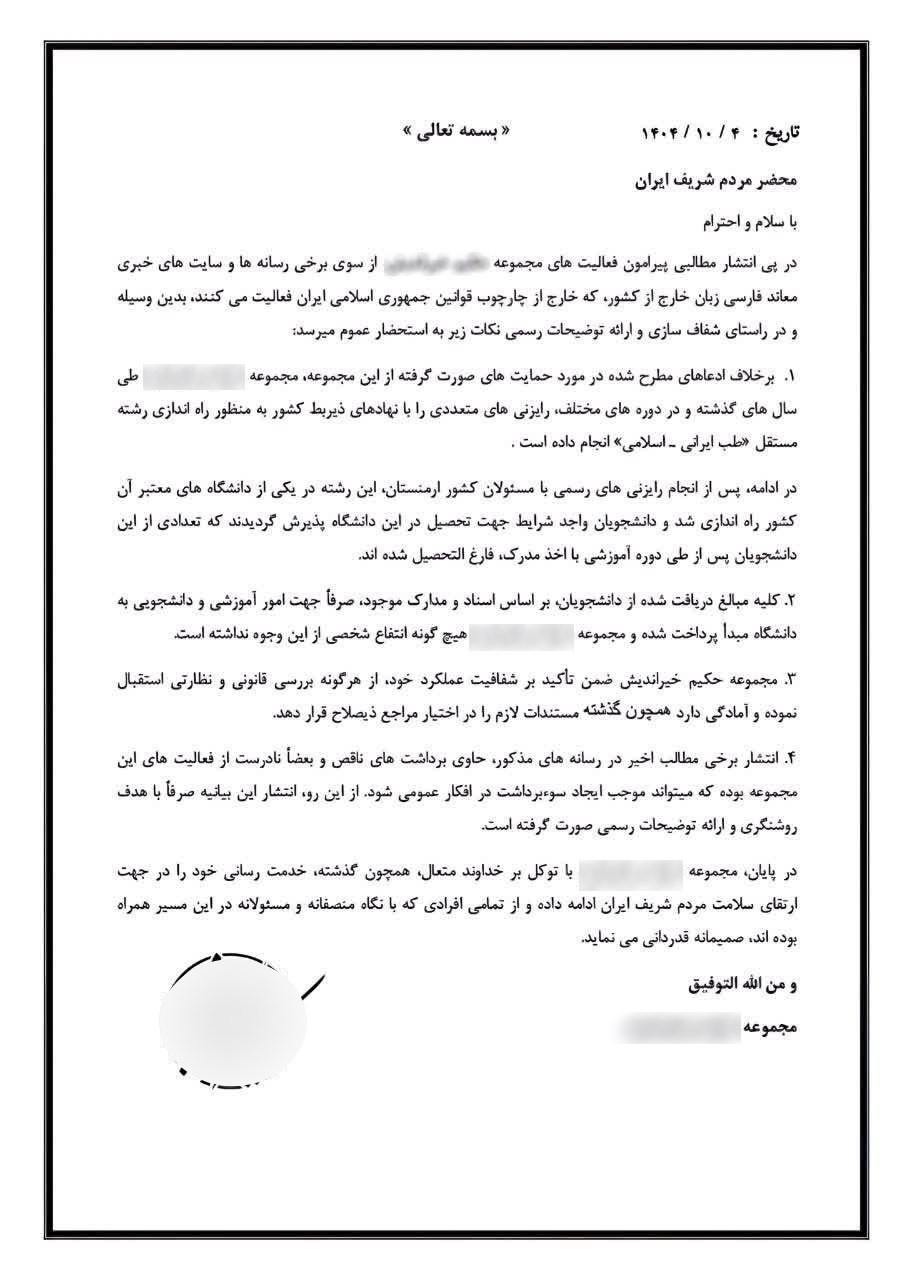 تاریخ : ۴ / ۱۰ / ۱۴۰۴
« بسمه تعالی »
محضر مردم شریف ایران
با سلام و احترام
در پی انتشار مطالبی پیرامون فعالیت های مجموعه از سوی برخی رسانه ها و سایت های خبری
معاند فارسی زبان خارج از کشور، که خارج از چارچوب قوانین جمهوری اسلامی ایران فعالیت می کنند، بدین وسیله
و در راستای شفاف سازی و ارائه توضیحات رسمی نکات زیر به استحضار عموم میرسد:
۱. برخلاف ادعاهای مطرح شده در مورد حمایت های صورت گرفته از این مجموعه، مجموعه طی
سال های گذشته و در دوره های مختلف، رایزنی های متعددی را با نهادهای ذیربط کشور به منظور راه اندازی رشته
مستقل «طب ایرانی ـ اسلامی» انجام داده است .
در ادامه، پس از انجام رایزنی های رسمی با مسئولان کشور ارمنستان، این رشته در یکی از دانشگاه های معتبر آن
کشور راه اندازی شد و دانشجویان واجد شرایط جهت تحصیل در این دانشگاه پذیرش گردیدند که تعدادی از این
دانشجویان پس از طی دوره آموزشی با اخذ مدرک، فارغ التحصیل شده اند.
۲. کلیه مبالغ دریافت شده از دانشجویان، بر اساس اسناد و مدارک موجود، صرفاً جهت امور آموزشی و دانشجویی به
دانشگاه مبدأ پرداخت شده و مجموعه هیچ گونه انتفاع شخصی از این وجوه نداشته است.
۳. مجموعه حکیم خیراندیش ضمن تأکید بر شفافیت عملکرد خود، از هرگونه بررسی قانونی و نظارتی استقبال
نموده و آمادگی دارد همچون گذشته مستندات لازم را در اختیار مراجع ذیصلاح قرار دهد.
۴. انتشار برخی مطالب اخیر در رسانه های مذکور، حاوی برداشت های ناقص و بعضاً نادرست از فعالیت های این
مجموعه بوده که میتواند موجب ایجاد سوءبرداشت در افکار عمومی شود. از این رو، انتشار این بیانیه صرفاً با هدف
روشنگری و ارائه توضیحات رسمی صورت گرفته است.
در پایان، مجموعه با توکل بر خداوند متعال، همچون گذشته، خدمت رسانی خود را در جهت
ارتقای سلامت مردم شریف ایران ادامه داده و از تمامی افرادی که با نگاه منصفانه و مسئولانه در این مسیر همراه
بوده اند، صمیمانه قدردانی می نماید.
و من الله التوفیق
مجموعه